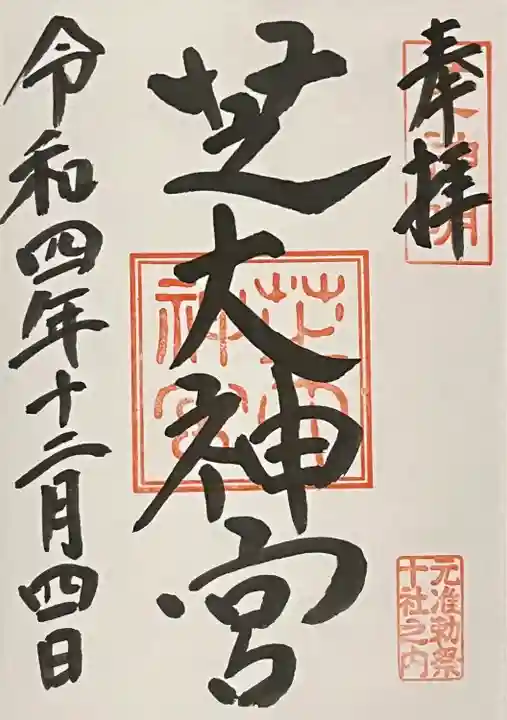 奉拝
芝大神宮
令和四年十二月四日
芝大神宮
元准勅祭
十社之内